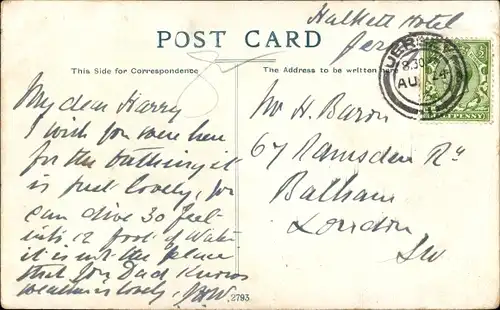 Halkett Hotel
Jersey
POST CARD
This Side for Correspondence
The Address to be written here
JERSEY
8.30
AU 24
PENNY
My dear Harry
I wish you were here
for the bathing it
is just lovely, you
can dive 30 feet
into 12 foot of Water
it is not the place
that you Dad knows
weather is lovely,
Mr H. Baron
67 Ramsden Rd
Balham
London
SW
2793